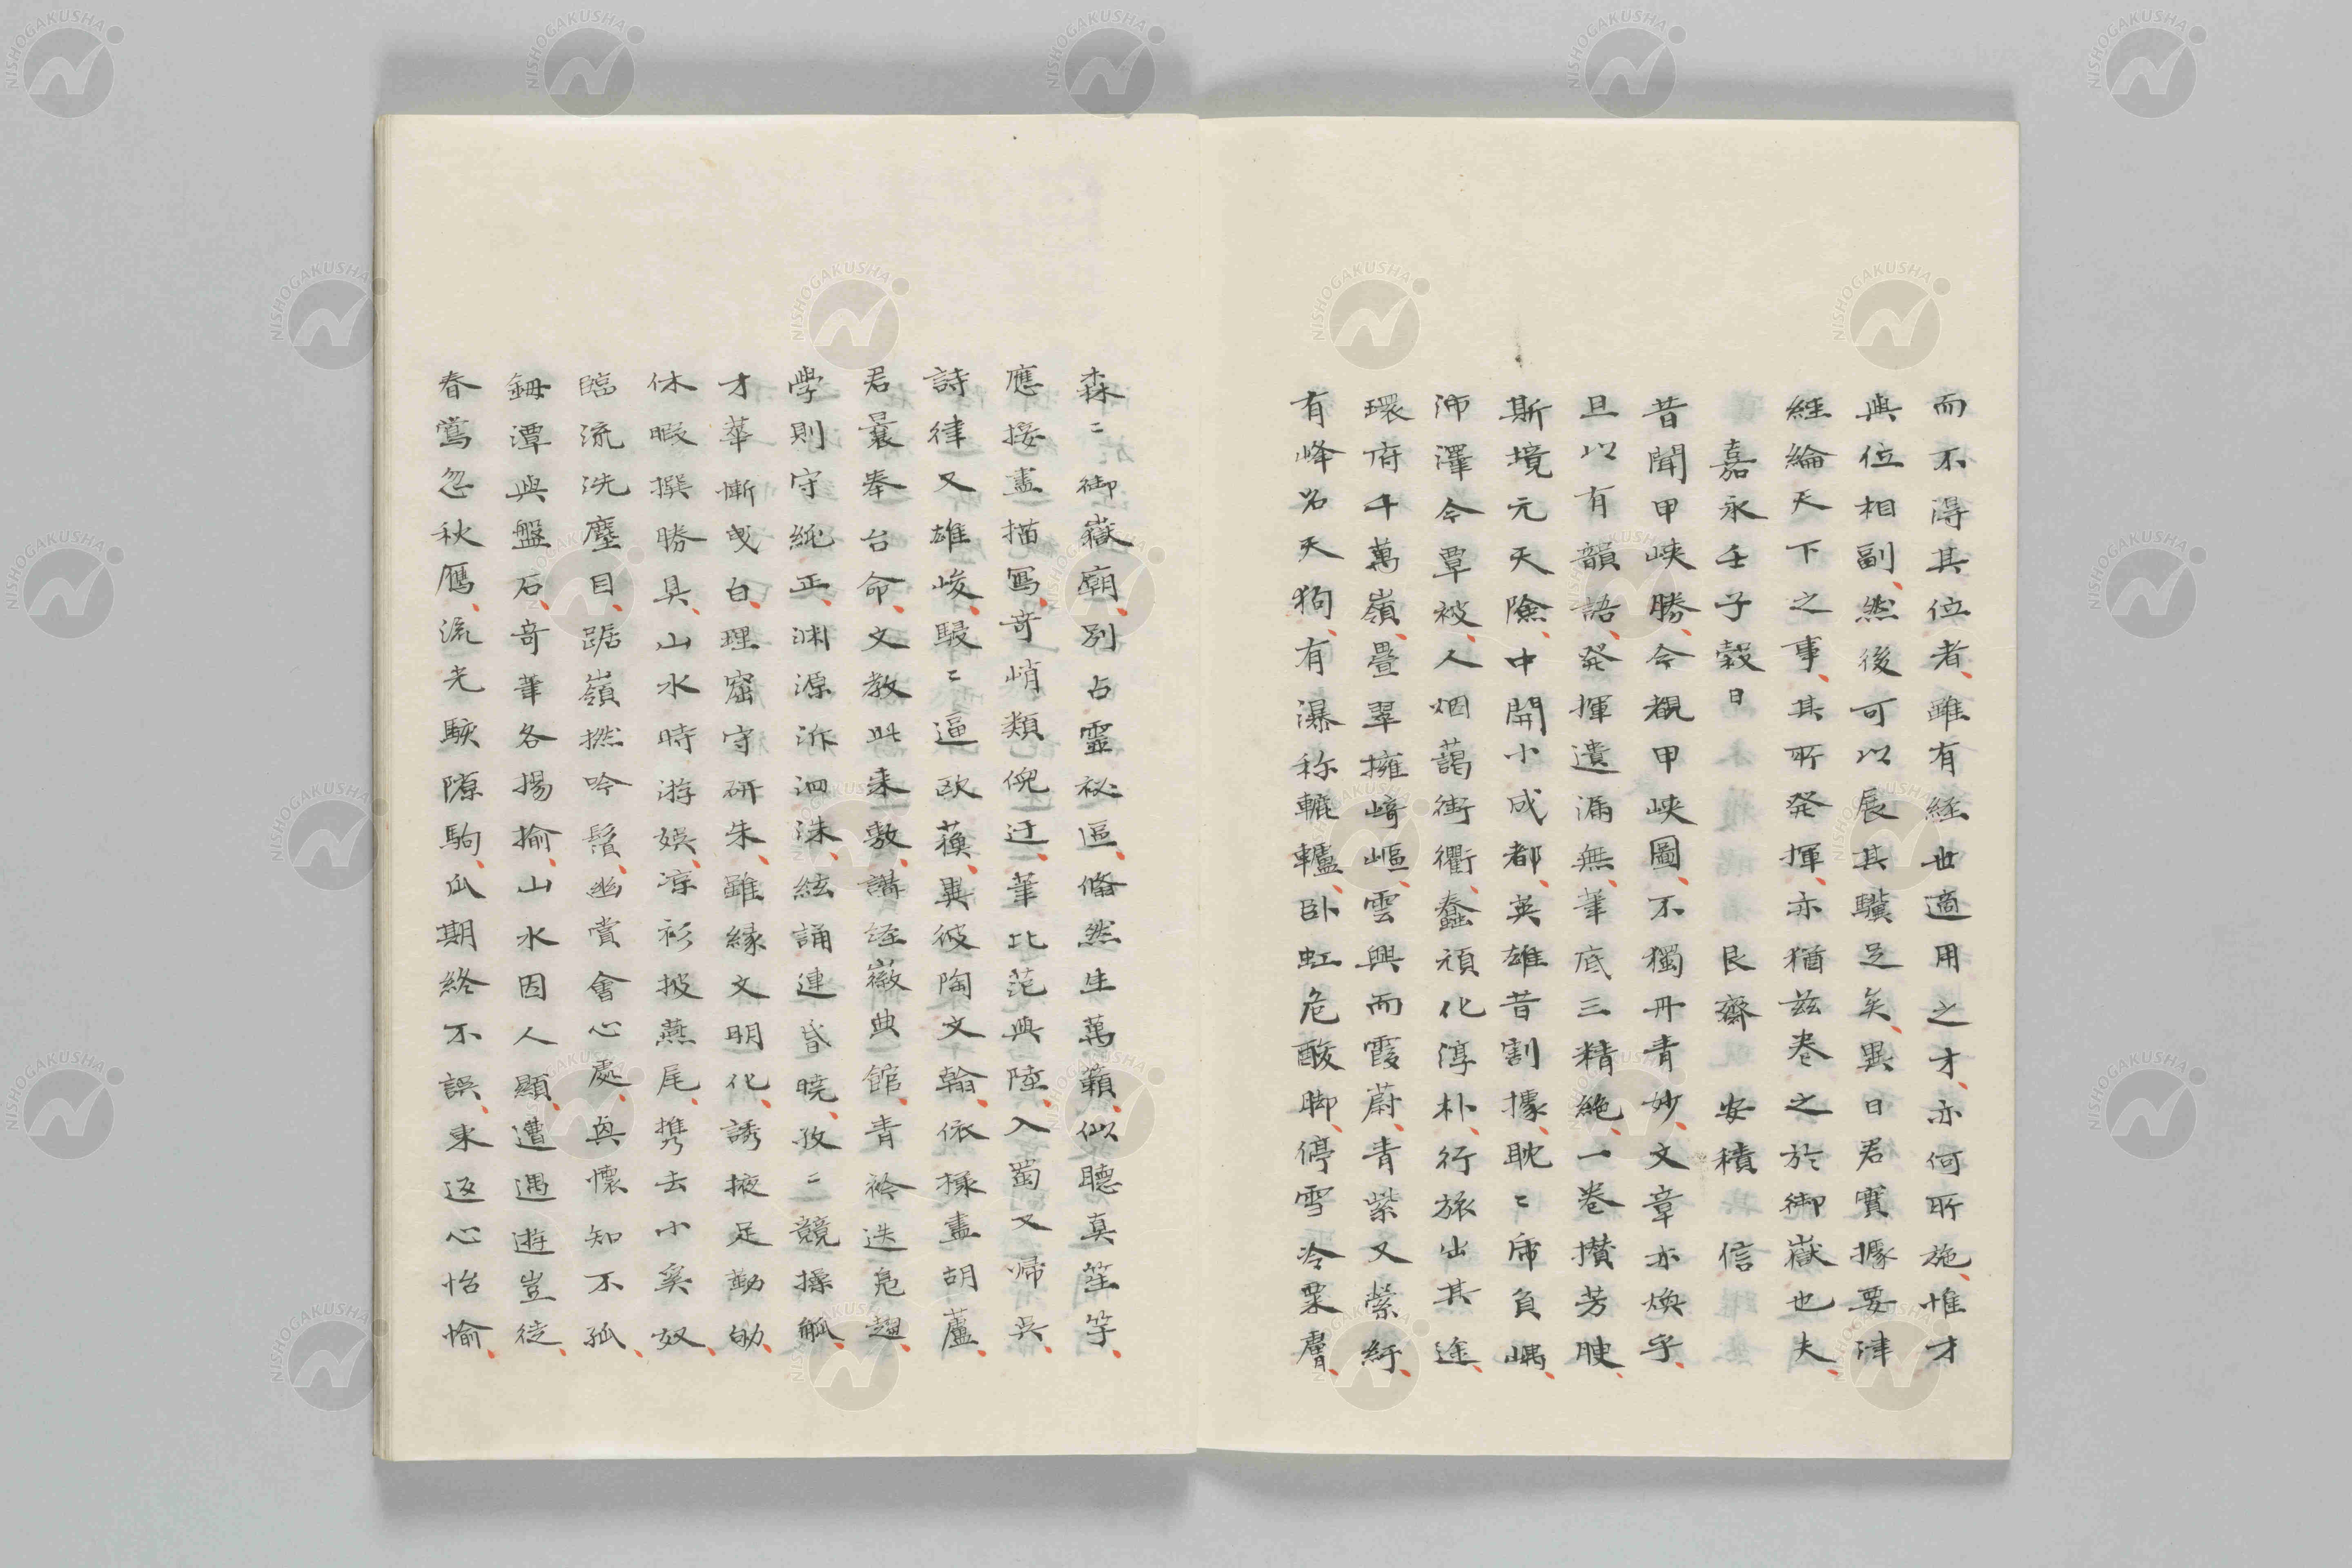 而不得其位者雖有経世適用之才亦何所施惟才
與位相副然後可以展其驥足矣異日君實據要津
経綸天下之事其所発揮亦猶茲巻之於御嶽也夫
嘉永壬子穀日　艮齋　安積　信
昔聞甲峽勝今観甲峽圖不獨丹青妙文章亦煥乎
且以有韻語発揮遺漏無筆底三精絶一巻攅芳腴
斯境元天險中開小成都英雄昔割據眈〻帍負嵎
沛澤今覃被人烟藹街衢蠢頑化淳朴行旅出其途
環府千萬嶺疊翠擁﨑嶇雲興而霞蔚青紫又縈紆
有峰名天狗有瀑称轆轤臥虹危酸脚停雪冷粟膚
森〻御嶽廟別占靈祕區翛然生萬籟似聽真笙竽
應接盡描冩奇峭類倪迂筆比范與陸入蜀又帰呉
詩律又雄峻駸〻逼欧蘓異彼陶文翰依様畫胡蘆
君曩奉台命文教此来敷講経徽典館青衿迭凫趨
學則守純正渊源泝泗洙絃誦連昏曉孜〻競操觚
才華慚曳白理窟守研朱雖縁文明化誘掖足勤劬
休暇撰勝具山水時游娯凉衫披燕尾携去小奚奴
臨流洗塵目踞嶺撚吟鬚幽賞會心處興懷知不孤
鈷潭與盤石奇筆各揚揄山水因人顯遭遇遊豈徒
春鶯忽秋鴈流光駛隙駒瓜期終不誤東返心怡愉
NISHOGAKUSHA